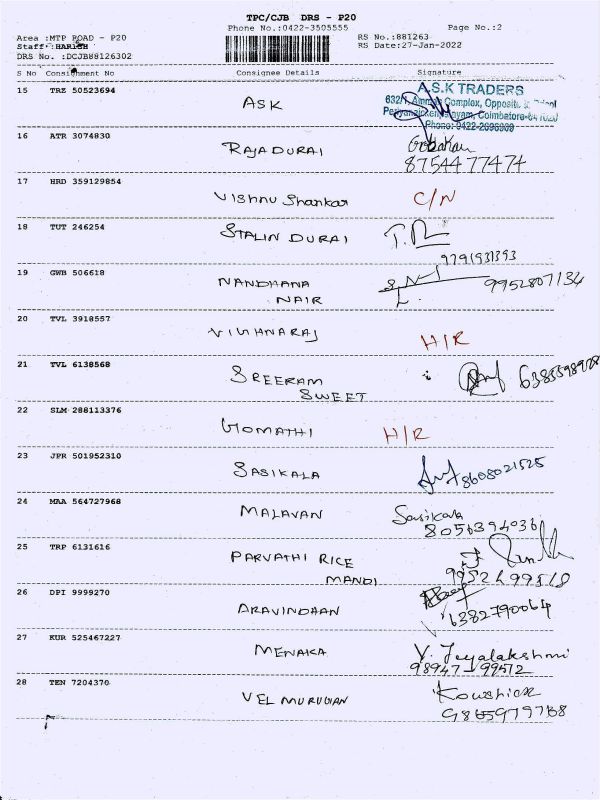 TPC/CJB DRS - P20
Phone No.:0422-3505555
Page No.:2
Area :MTP ROAD - P20
RS No.:881263
Staff :HARISH
RS Date:27-Jan-2022
DRS No. :DCJB88126302
S No Consignment No Consignee Details Signature
15 TRZ 50523694 ASK A.S.K TRADERS
632/1, Complex, Opposite
Coimbatore-641020
Phone: 0422-2696909
16 ATR 3074830 RAJADURAI
8754477474
17 HRD 359129854 Vishnu Shankar C/N
18 TUT 246254 STALIN DURAI
9791931393
19 GWB 506618 NANDHANA NAIR 9952807134
20 TVL 3918557 H/R
21 TVL 6138568 SREERAM SWEET
22 SLM 288113376 GOMATHI H/R
23 JPR 501952310 SASIKALA 8608021525
24 MAA 564727968 MALAVAN Sasikala
8056394036
25 TRP 6131616 PARVATHI RICE MANDI
26 DPI 9999270 ARAVINDHAN 6382790064
27 KUR 525467227 MENAKA V. Jeyalakshmi
98947-99512
28 TEN 7204370 VEL MURUGAN Koushick